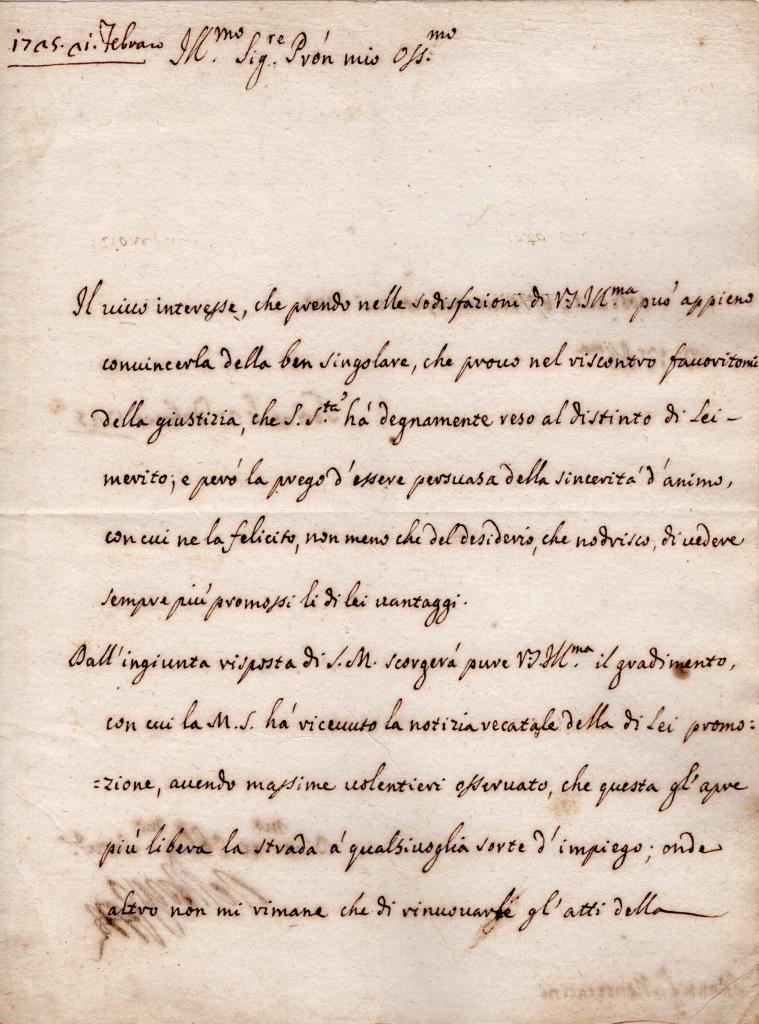 1725. ai. Febraro Ill.mo Sig.re Prón mio Oss.mo
Il uiuo interesse, che prendo nelle sodisfazioni di V.S. Ill.ma può appieno
conuincerla della ben singolare, che prouo nel riscontro fauoritomi
della giustizia, che S. S.tà hà degnamente reso al distinto di Lei
merito; e però la prego d'essere persuasa della sincerità d'animo,
con cui ne la felicito, non meno che del desiderio, che nodrisco, di uedere
sempre più promossi li di lei uantaggi.
Dall'ingiunta risposta di S. M. scorgerà pure V.S. Ill.ma il gradimento,
con cui la M. S. hà riceuuto la notizia recatale della di Lei promo:
:zione, auendo massime uolentieri osseruato, che questa gl'apre
più libera la strada à qualsiuoglia sorte d'impiego; onde
altro non mi rimane che di rinuouarle gl'atti della